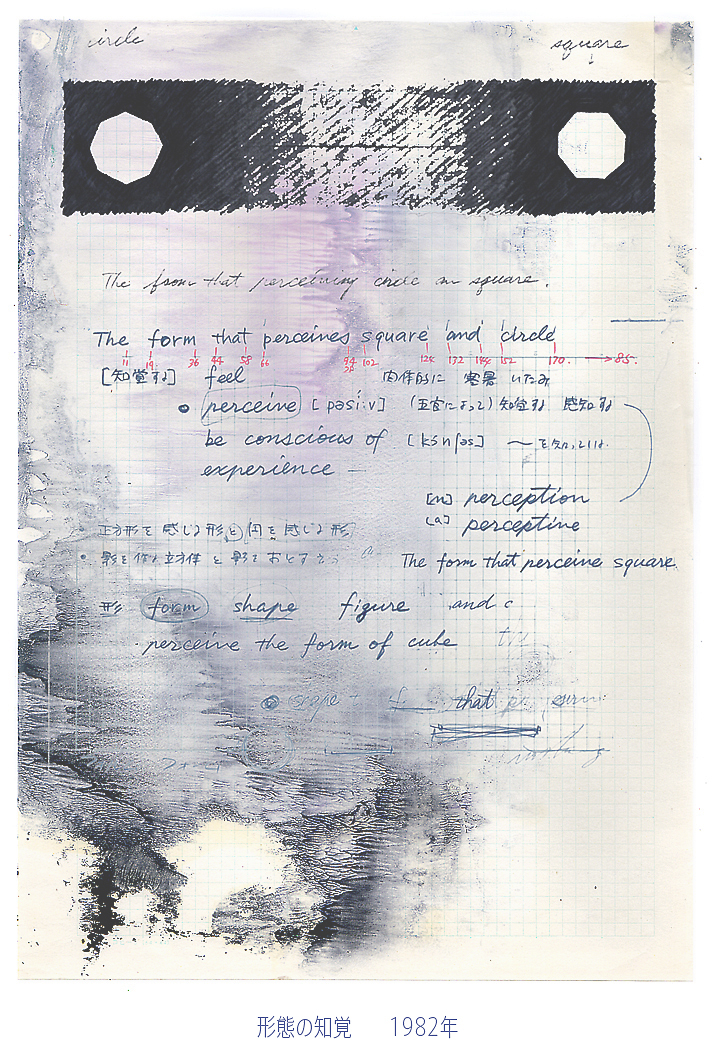 circle square
The form that perceiving circle on square.
The form that perceives square and circle
11 19 36 44 58 66 94 102 124 132 146 152 170 85.
[知覚する] feel 肉体的に 寒暑 いたみ
perceive [pəsíːv] (五官によって) 知覚する 感知する
be conscious of [kɔ́nʃəs]
experience
[n] perception
[a] perceptine
正方形を感じる形と円を感じる形
影を作る立体と影をおとす
The form that perceine square
形 form shape figure and c
perceive the form of cube
that
形態の知覚 1982年